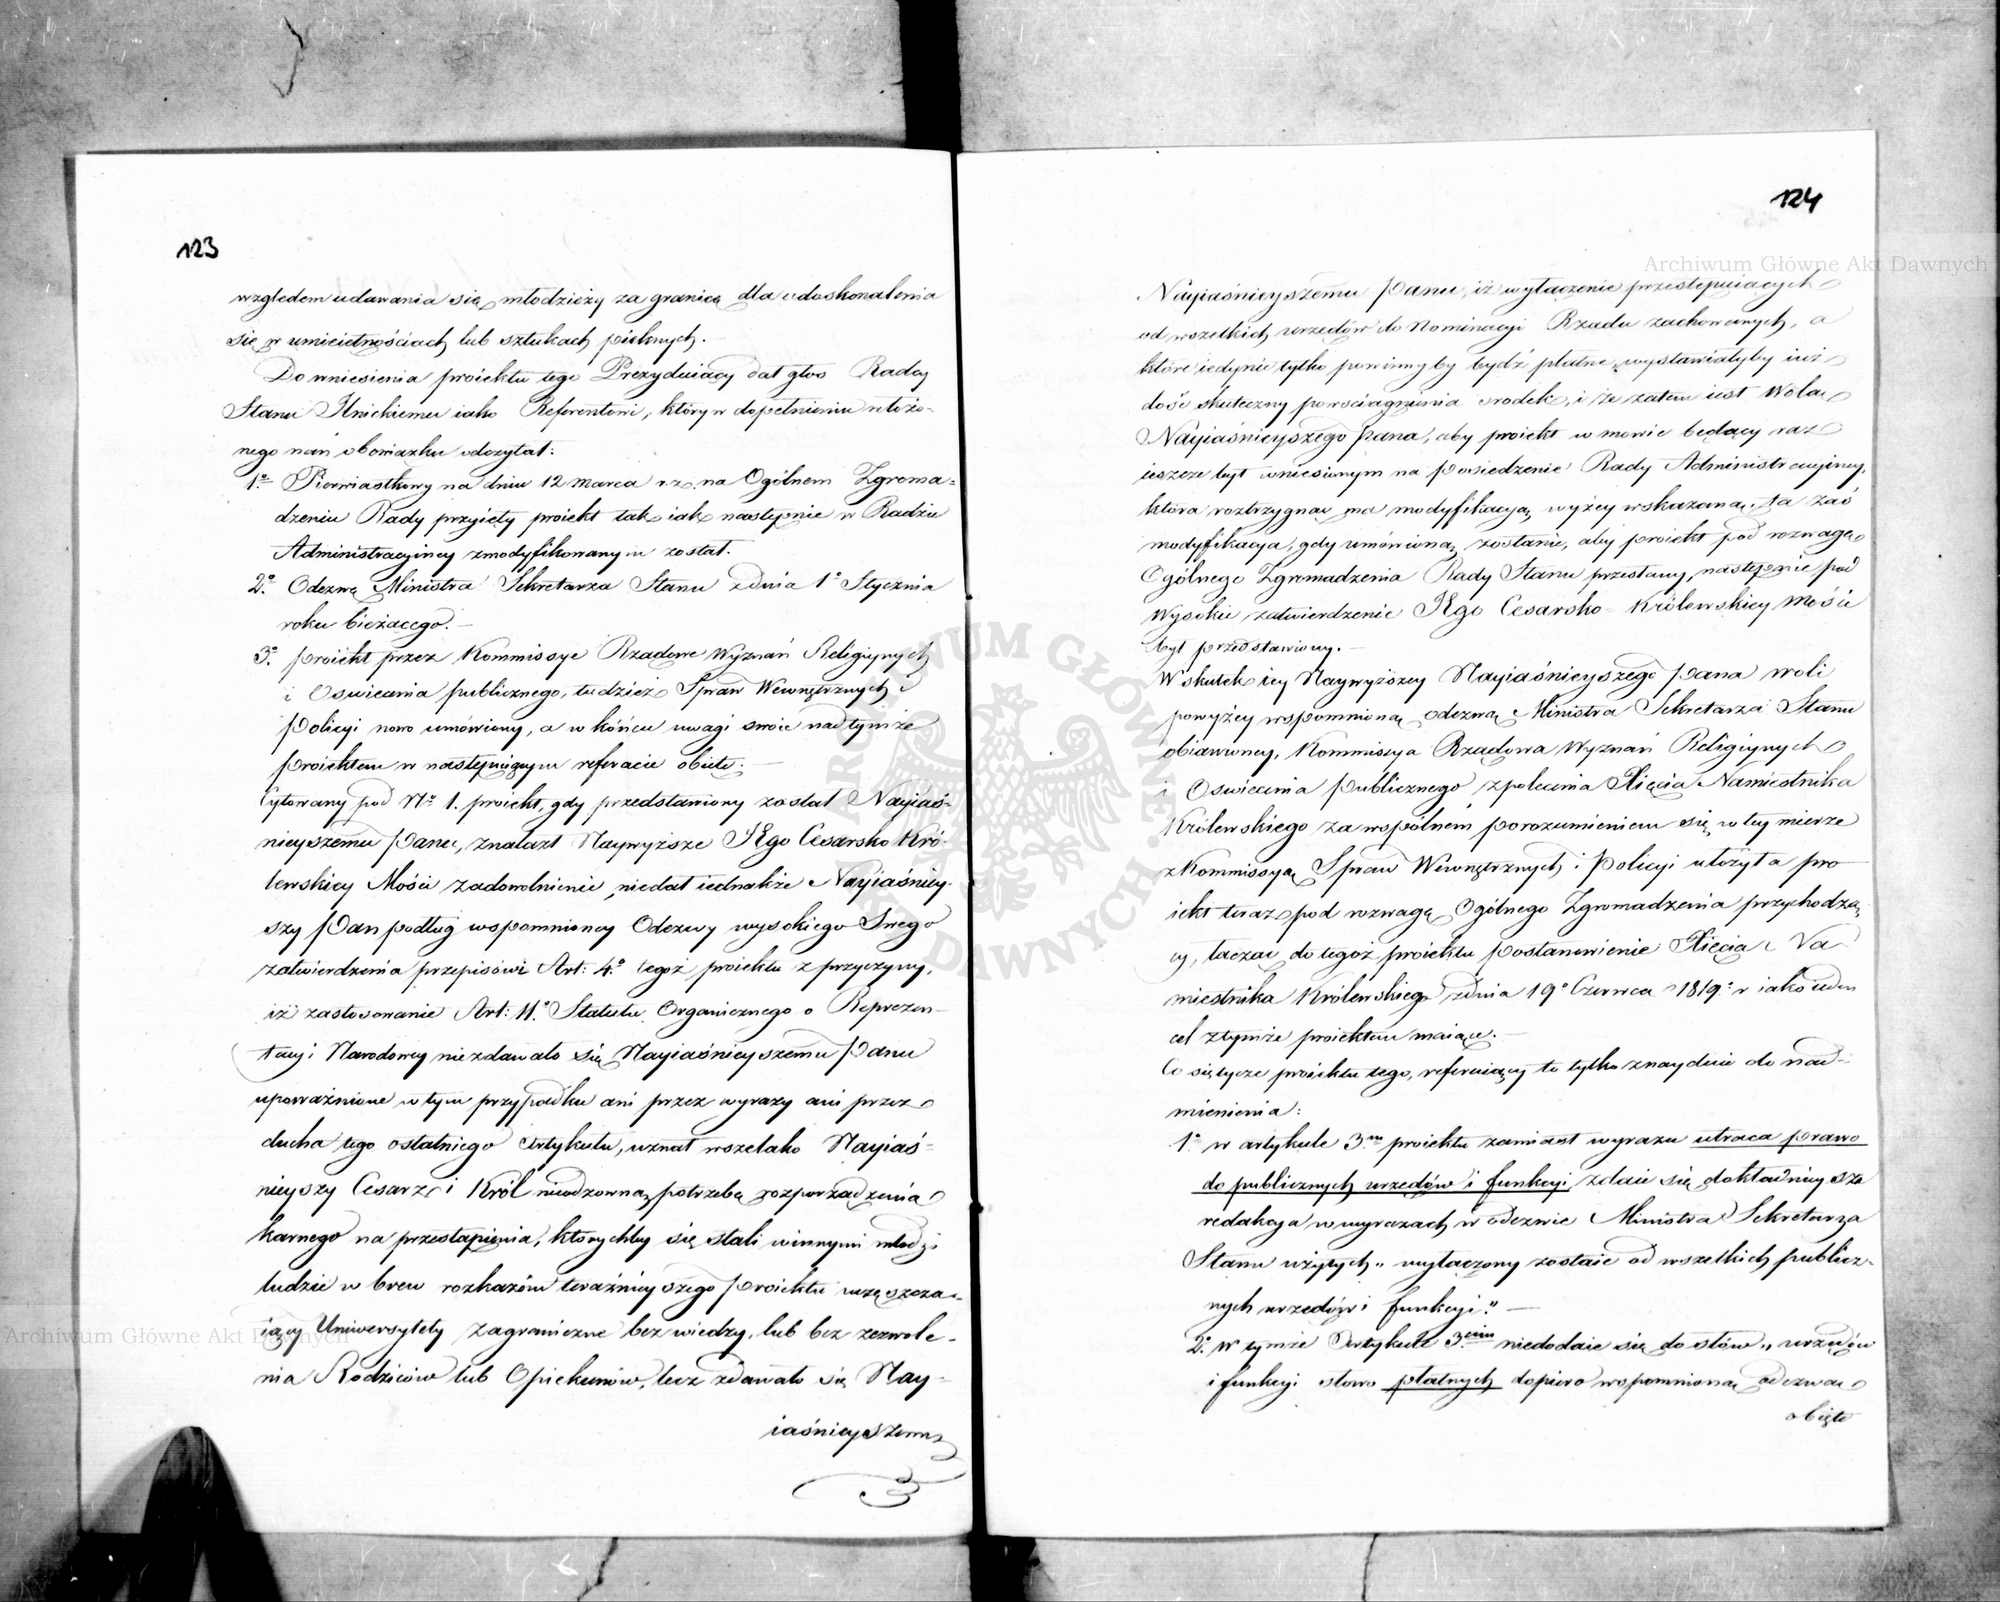 123
względem udawania się młodzieży za granicę dla udoskonalenia
się w umieiętnościach lub sztukach pięknych.
Do wniesienia proiektu tego Prezyduiący dał głos Radcy
Stanu Ilnickiemu iako Referentowi, który w dopełnieniu włożo-
nego nań obowiązku odczytał:
1o Pierwiastkowy na dniu 12 marca r. z. na Ogólnem Zgroma-
dzeniu Rady przyięty proiekt tak iak następnie w Radzie
Administracyiney zmodyfikowanym został.
2o Odezwę Ministra Sekretarza Stanu z dnia 1o Stycznia
roku bieżącego. –
3o proiekt przez Kommissye Rządowe Wyznań Religiynych
i Oswiecenia publicznego, tudzież Spraw Wewnętrznych i
Policyi nowo umówiony, a w końcu uwagi swoie nad tymże
proiektem w następuiącym referacie obięte: –
Cytowany pod No 1. proiekt, gdy przedstawiony został Nayiaś-
nieyszemu Panu, znalazł Naywyższe JKgo Cesarsko Kró-
lewskiey Mości zadowolnienie, niedał iednakże Nayiaśniey-
szy Pan podług wspomnioney Odezwy wysokiego Swego
zatwierdzenia przepisowi Art: 4o tegoż proiektu z przyczyny,
iż zastosowanie Art: 11o Statutu Organicznego o Reprezen-
tacyi Narodowey nie zdawało się Nayiaśnieyszemu Panu
upoważnione w tym przypadku ani przez wyrazy ani przez
ducha tego ostatniego Artykułu, uznał wszelako Nayiaś-
nieyszy Cesarz i Król nieodzowną potrzebę rozporządzenia
karnego na przestąpienia, którychby się stali winnymi młodzi
ludzie w brew rozkazów teraźnieyszego proiektu uczęszcza-
iący Uniwersytety zagraniczne bez wiedzy, lub bez zezwole-
nia Rodziców lub Opiekunów, lecz zdawało się Nay-
iaśnieyszemu
124
Nayiaśnieyszemu Panu, iż wyłączenie przestępuiących
od wszelkich urzędów do Nominacyi Rządu zachowanych, a
które iedynie tylko powinnyby bydź płatne, wystawiałyby iuż
dość skuteczny powściągnienia srodek, i że zatem iest Wolą
Nayiaśnieyszego Pana, aby proiekt w mowie będący raz
ieszcze był wniesionym na posiedzenie Rady Administracyiney,
która roztrzygnąć ma modyfikacyą wyżey wskazaną, ta zaś
modyfikacya, gdy umówioną zostanie, aby proiekt pod rozwagę
Ogólnego Zgromadzenia Rady Stanu przesłany, następnie pod
wysokie zatwierdzenie JKgo Cesarsko-Królewskiey Mości
był przedstawiony. –
W skutek iey Naywyższey Nayiaśnieyszego Pana woli
powyżey wspomnioną odezwą Ministra Sekretarza Stanu
obiawioney, Kommissya Rządowa Wyznań Religiynych
i Oswiecenia Publicznego z polecenia Xięcia Namiestnika
Królewskiego za wspólnem porozumieniem się w tey mierze
z Kommissyą Spraw Wewnętrznych i Policyi ułożyła pro
iekt teraz pod rozwagę Ogólnego Zgromadzenia przychodzą-
cy, łącząc do tegoż proiektu Postanowienie Xięcia Na
miestnika Królewskiego z dnia 19o Czerwca 1819o r iako ieden
cel z tymże proiektem maiące. –
Co się tycze proiektu tego, referuiący to tylko znayduie do nad-
mienienia:
1o w artykule 3m proiektu zamiast wyrazu utraca prawo
do publicznych urzędów i funkcyi, zdaie się dokładnieysza
redakcya w wyrazach w odezwie Ministra Sekretarza
Stanu użytych „wyłączony zostaie od wszelkich publicz-
nych urzędów i funkcyi." –
2o W tymże Artykule 3cim niedodaie się do słów „urzędów
i funkcyi słowo płatnych dopiero wspomnioną odezwą
obięte
Archiwum Główne Akt Dawnych
Archiwum Główne Akt Dawnych
ARCHIWUM GŁÓWNE AKT DAWNYCH